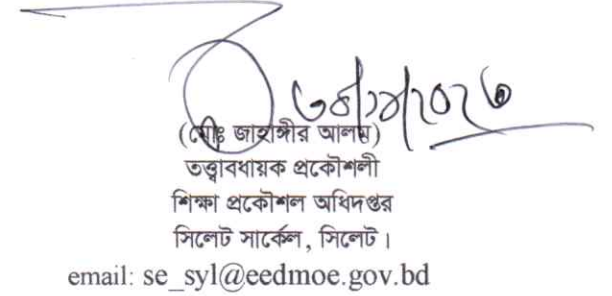 (মোঃ জাহাঙ্গীর আলম)
তত্ত্বাবধায়ক প্রকৌশলী
শিক্ষা প্রকৌশল অধিদপ্তর
সিলেট সার্কেল, সিলেট।
email: se_syl@eedmoe.gov.bd